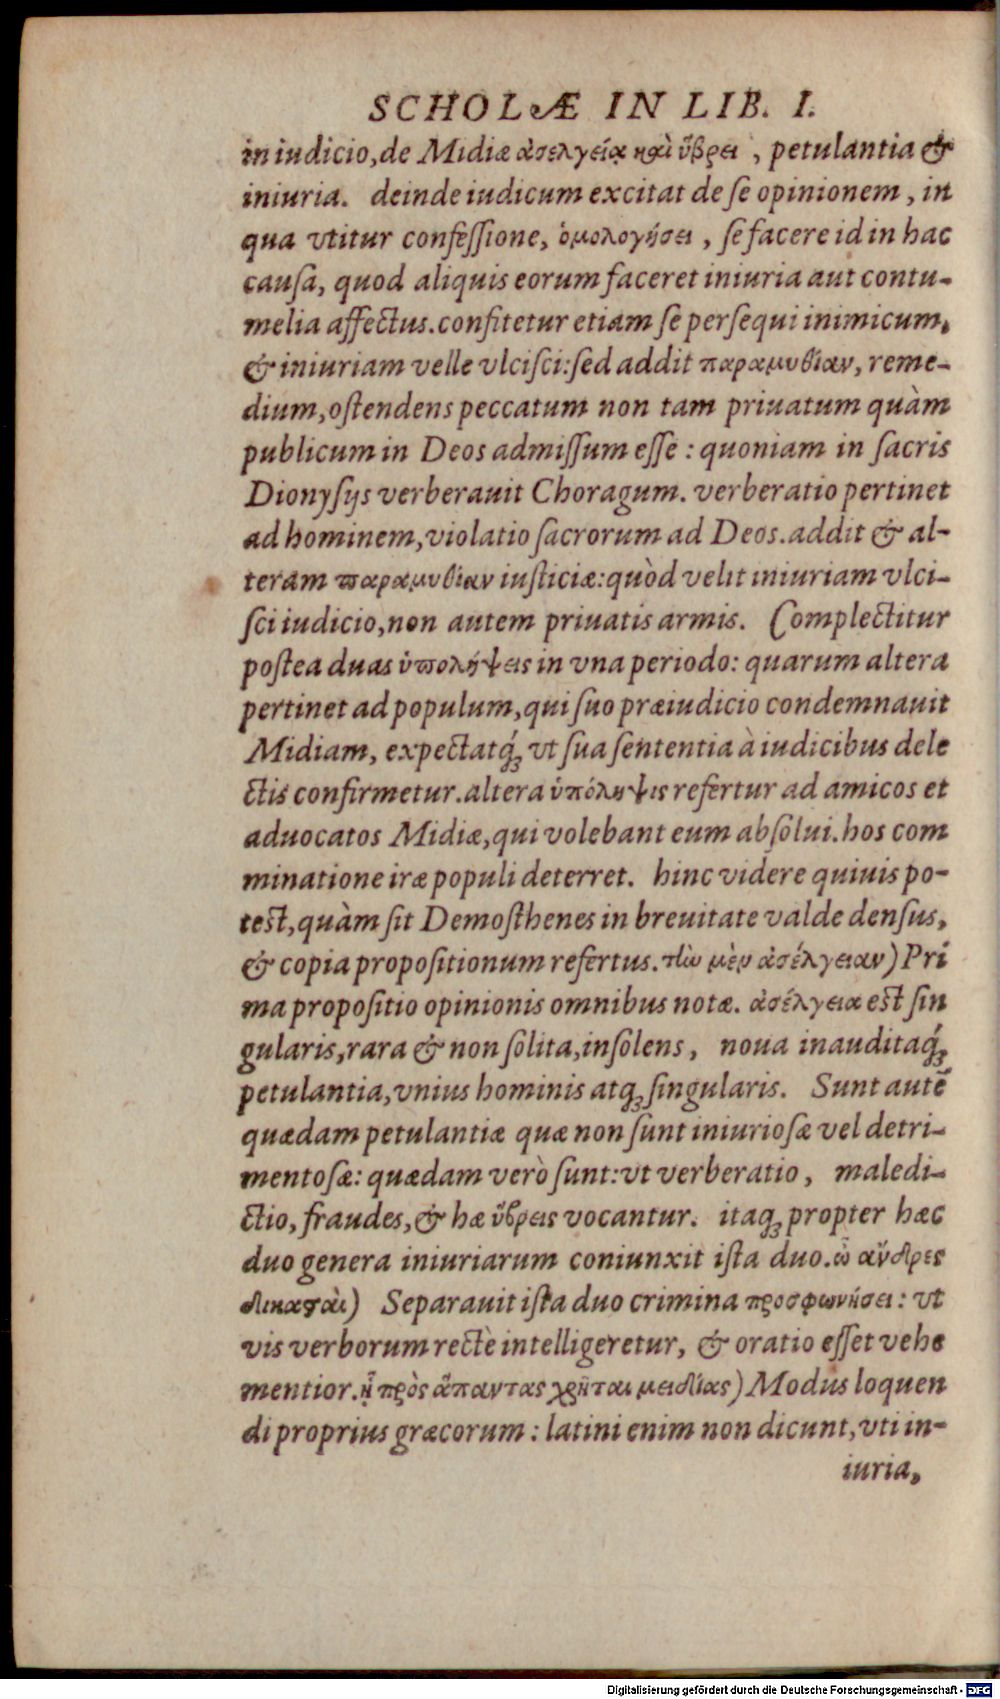 SCHOLÆ IN LIB. I.
in iudicio, de Midiæ ἀσελγείᾳ καὶ ὕβρει, petulantia &
iniuria. deinde iudicum excitat de ſe opinionem, in
qua vtitur confeſſione, ὁμολογήσει, ſe facere id in hac
cauſa, quod aliquis eorum faceret iniuria aut contu-
melia affectus. confitetur etiam ſe perſequi inimicum,
& iniuriam velle vlciſci: ſed addit παραμυθίαν, reme-
dium, oſtendens peccatum non tam priuatum quàm
publicum in Deos admiſſum eſſe: quoniam in ſacris
Dionyſijs verberauit Choragum. verberatio pertinet
ad hominem, violatio ſacrorum ad Deos. addit & al-
teram παραμυθίαν iuſticiæ: quòd velit iniuriam vlci-
ſci iudicio, non autem priuatis armis. Complectitur
poſtea duas ὑπολήψεις in vna periodo: quarum altera
pertinet ad populum, qui ſuo præiudicio condemnauit
Midiam, expectatq́ꝫ vt ſua ſententia à iudicibus dele
ctis confirmetur. altera ὑπόληψις refertur ad amicos et
aduocatos Midiæ, qui volebant eum abſolui. hos com
minatione iræ populi deterret. hinc videre quiuis po-
teſt, quàm ſit Demoſthenes in breuitate valde denſus,
& copia propoſitionum refertus. τὴν μὲν ἀσέλγειαν) Pri
ma propoſitio opinionis omnibus notæ. ἀσέλγεια eſt ſin
gularis, rara & non ſolita, inſolens, noua inauditaq́ꝫ
petulantia, vnius hominis atqꝫ ſingularis. Sunt autē
quædam petulantiæ quæ non ſunt iniurioſæ vel detri-
mentoſæ: quædam verò ſunt: vt verberatio, maledi-
ctio, fraudes, & hæ ὕβρεις vocantur. itaqꝫ propter hæc
duo genera iniuriarum coniunxit iſta duo. ὦ ἄνδρες
δικασταὶ) Separauit iſta duo crimina προσφωνήσει: vt
vis verborum rectè intelligeretur, & oratio eſſet vehe
mentior. ᾗ πρὸς ἅπαντας χρῆται μειδίας) Modus loquen
di proprius græcorum: latini enim non dicunt, vti in-
iuria,
Digitalisierung gefördert durch die Deutsche Forschungsgemeinschaft - DFG